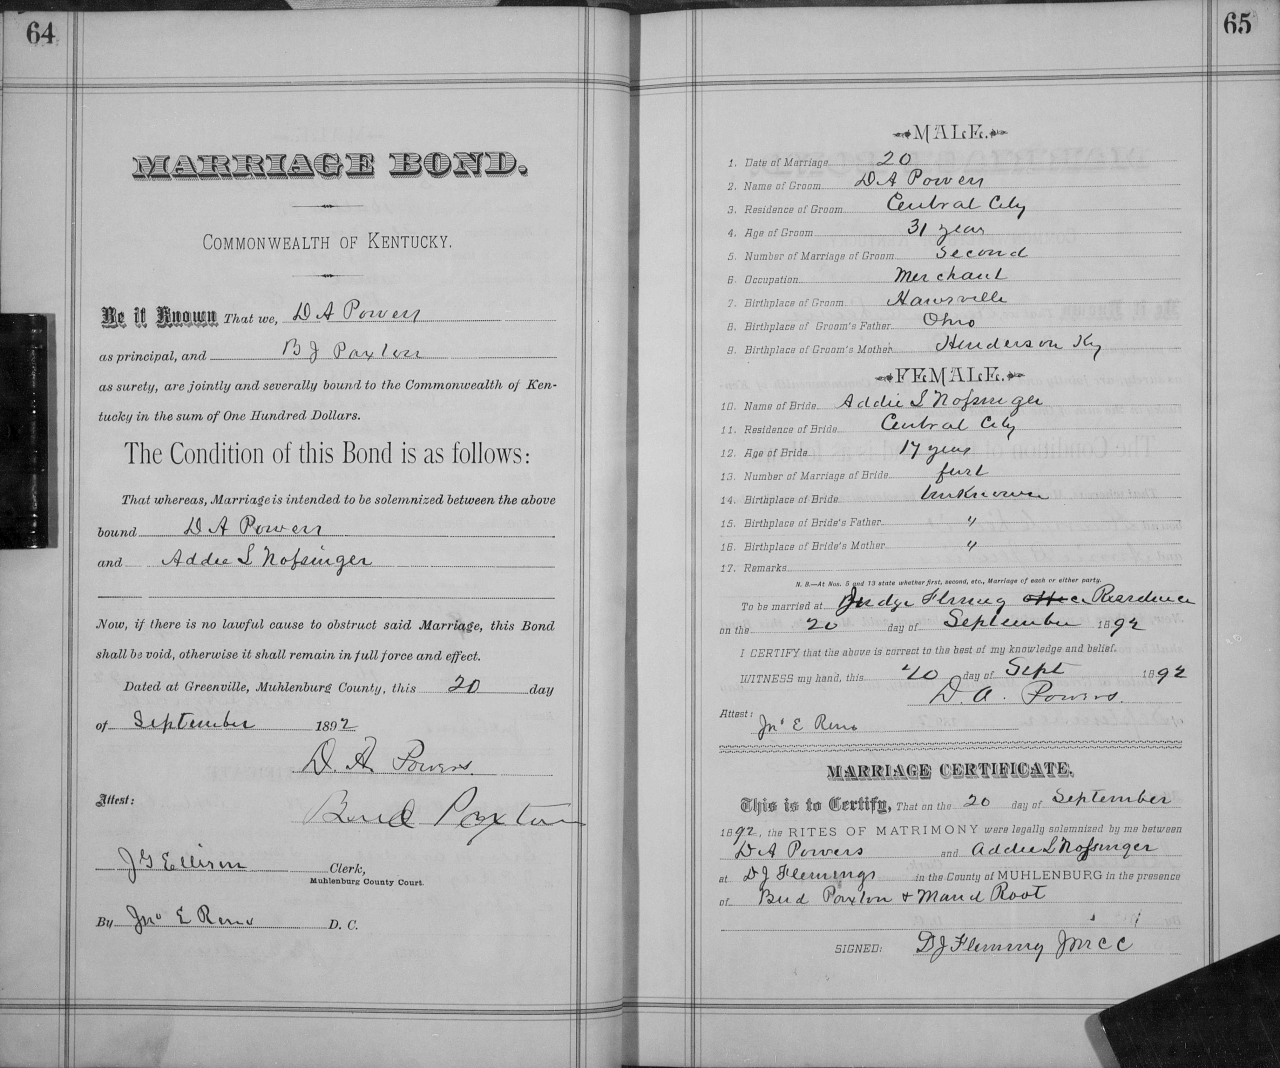 64
MARRIAGE BOND.
COMMONWEALTH OF KENTUCKY.
Be it Known That we, D A Powers
as principal, and B J Paxton
as surety, are jointly and severally bound to the Commonwealth of Ken-
tucky in the sum of One Hundred Dollars.
The Condition of this Bond is as follows:
That whereas, Marriage is intended to be solemnized between the above
bound D A Powers
and Addie S Nofsinger
Now, if there is no lawful cause to obstruct said Marriage, this Bond
shall be void, otherwise it shall remain in full force and effect.
Dated at Greenville, Muhlenburg County, this 20 day
of September 1892
D. A. Powers.
Attest:
Bud Paxton
J G Ellison Clerk,
Muhlenburg County Court.
By Jno E Reno D. C.
65
MALE.
1. Date of Marriage 20
2. Name of Groom D A Powers
3. Residence of Groom Central City
4. Age of Groom 31 years
5. Number of Marriage of Groom Second
6. Occupation Merchant
7. Birthplace of Groom Hawsville
8. Birthplace of Groom's Father Ohio
9. Birthplace of Groom's Mother Henderson Ky
FEMALE.
10. Name of Bride Addie S Nofsinger
11. Residence of Bride Central City
12. Age of Bride 17 years
13. Number of Marriage of Bride first
14. Birthplace of Bride Unknown
15. Birthplace of Bride's Father "
16. Birthplace of Bride's Mother "
17. Remarks
N. B.—At Nos. 5 and 13 state whether first, second, etc., Marriage of each or either party.
To be married at Judge Fleming office Residence
on the 20 day of September 1892
I CERTIFY that the above is correct to the best of my knowledge and belief.
WITNESS my hand, this 20 day of Sept 1892
D. A. Powers.
Attest:
Jno E Reno
MARRIAGE CERTIFICATE.
This is to Certify, That on the 20 day of September
1892, the RITES OF MATRIMONY were legally solemnized by me between
D A Powers and Addie S Nofsinger
at D J Flemings in the County of MUHLENBURG in the presence
of Bud Paxton + Maud Root
SIGNED: D J Fleming J M C C